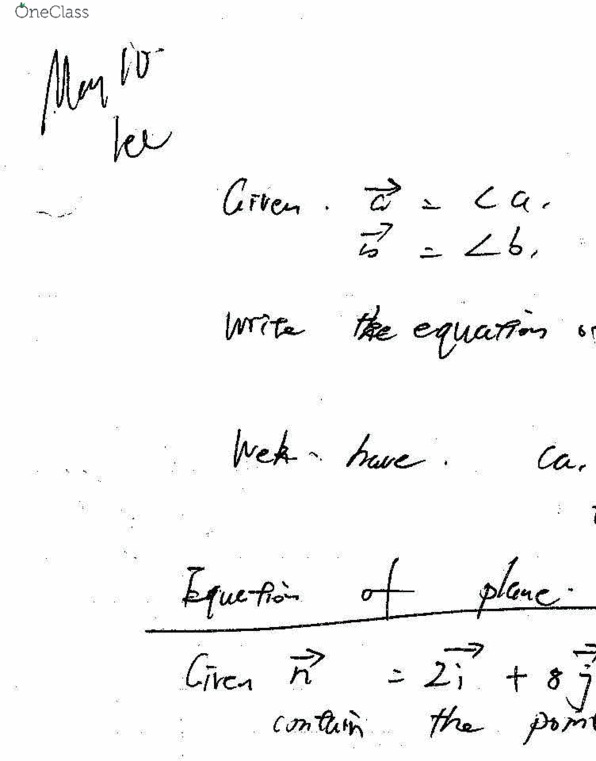 OneClass
May 10
Given. a⃗ = <a,
b⃗ = <b,
Write the equation
have. ca,
Equation of plane.
Given n⃗ = 2i⃗ + 8j⃗
contain the point